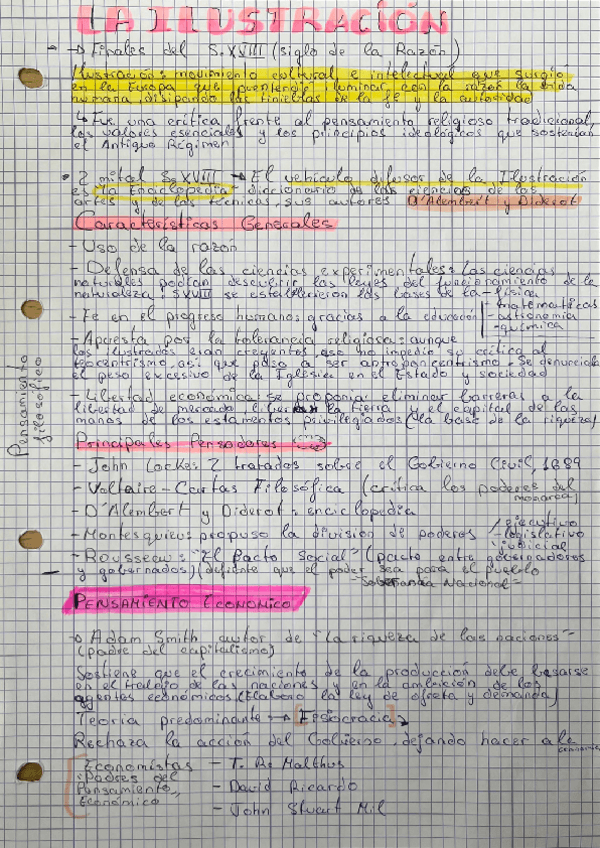 LA ILUSTRACIÓN
→ Finales del S. XVIII (siglo de la Razón)
Ilustración: movimiento cultural e intelectual que surgió
en la Europa que pretendió iluminar con la razón la vida
humana, disipando las tinieblas de la fe y la autoridad
↳ Fue una crítica frente al pensamiento religioso tradicional,
los valores esenciales y los principios ideológicos que sostenían
el Antiguo Régimen
2 mitad S. XVIII → El vehículo difusor de la Ilustración
es "la Enciclopedia" - diccionario de las ciencias de las
artes y de las técnicas, sus autores D'Alembert y Diderot
Características Generales
- Uso de la razón
- Defensa de las ciencias experimentales: las ciencias
naturales podían descubrir las leyes del funcionamiento de la
naturaleza; S XVIII se establecieron las bases de la - física
- matemáticas
- Fe en el progreso humano: gracias a la educación - astronomía
- química
- Apuesta por la tolerancia religiosa: aunque
los ilustrados eran creyentes, eso no impedía su crítica al
teocentrismo, así que pasó a ser antropocentrismo. Se denuncia
el peso excesivo de la Iglesia en el Estado y sociedad
- Libertad económica: se proponía eliminar barreras a la
libertad de mercado, la tierra y el capital de las
manos de los estamentos privilegiados (la base de la riqueza)
Pensamiento
filosófico
Principales Pensadores
- John Locke: 2 tratados sobre el Gobierno Civil, 1689
- Voltaire - Cartas Filosófica (crítica los poderes del
monarca)
- D'Alembert y Diderot: enciclopedia
- Montesquieu: propuso la división de poderes / ejecutivo
- legislativo
judicial
- Rousseau: "El Pacto Social" (pacto entre gobernadores
y gobernados) (defiende que el poder sea para el pueblo
- Soberanía Nacional -
PENSAMIENTO ECONOMICO
Adam Smith autor de "La riqueza de las naciones"
(padre del capitalismo)
Sostiene que el crecimiento de la producción debe basarse
en el trabajo de las naciones y en la ambición de los
agentes económicos. (Elaboró la ley de oferta y demanda)
Teoría predominante → [Fisiocracia]
Rechaza la acción del Gobierno, dejando hacer a la
economía
Economistas - T. R. Malthus
"Padres del
Pensamiento - David Ricardo
Económico
- John Stuart Mil